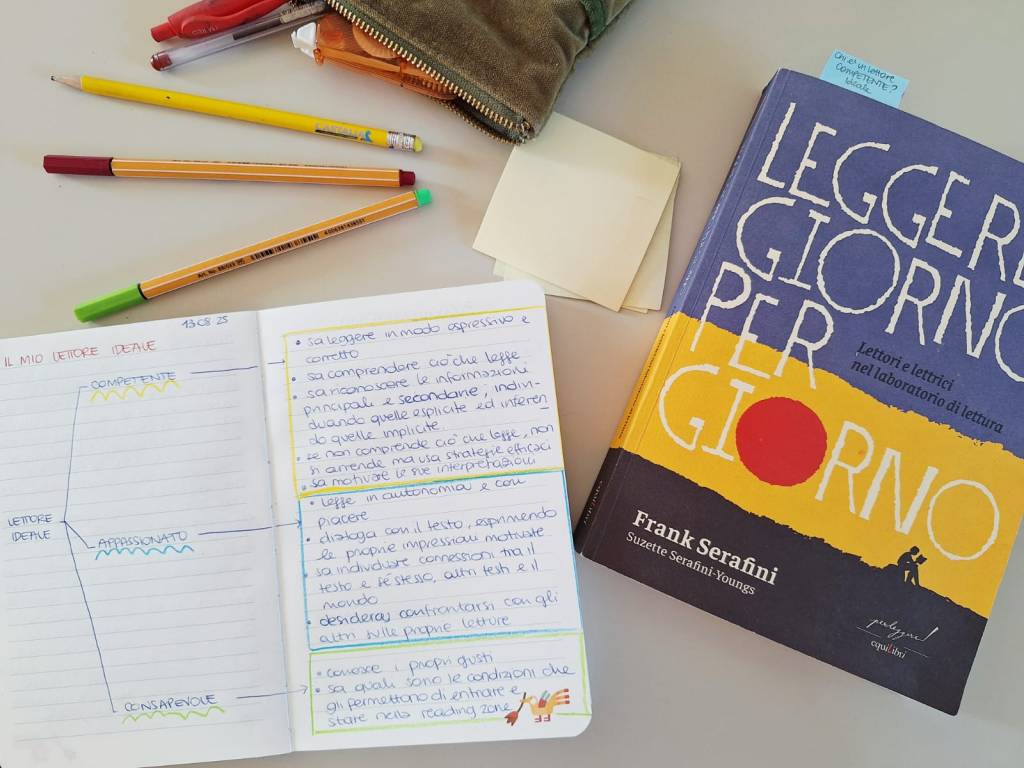 Chi è un lettore
COMPETENTE?
ideale
LEGGERE
GIORNO
PER
GIORNO
Lettori e lettrici
nel laboratorio di lettura
Frank Serafini
Suzette Serafini-Youngs
equilibri
13.08.25
IL MIO LETTORE IDEALE
LETTORE
IDEALE
COMPETENTE
• sa leggere in modo espressivo e
corretto
• sa comprendere ciò che legge
• sa riconoscere le informazioni
principali e secondarie, indivi-
duando quelle esplicite ed inferen-
do quelle implicite.
• se non comprende ciò che legge, non
si arrende ma usa strategie efficaci
• sa motivare le sue interpretazioni
APPASSIONATO
• legge in autonomia e con
piacere
• dialoga con il testo, esprimendo
le proprie impressioni motivate
• sa individuare connessioni tra il
testo e sé stesso, altri testi e il
mondo
• desidera confrontarsi con gli
altri sulle proprie letture
CONSAPEVOLE
• conosce i propri gusti
• sa quali sono le condizioni che
gli permettono di entrare e
stare nella reading zone